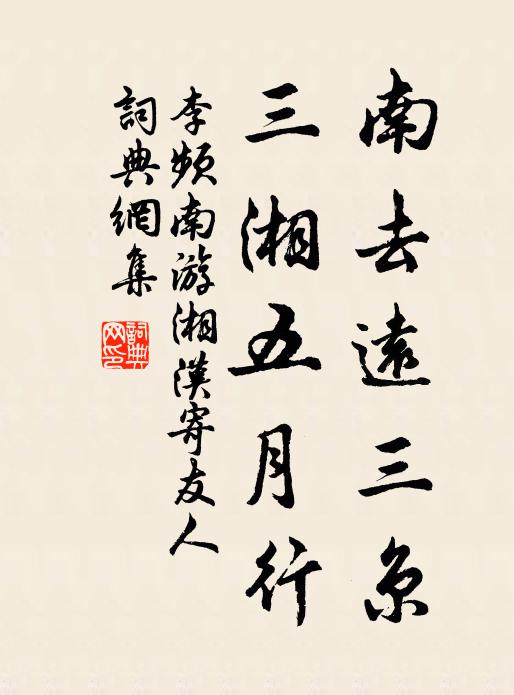 南去遠三京
三湘五月行
李頻南游湘漢寄友人
詞典網集
詞典网印